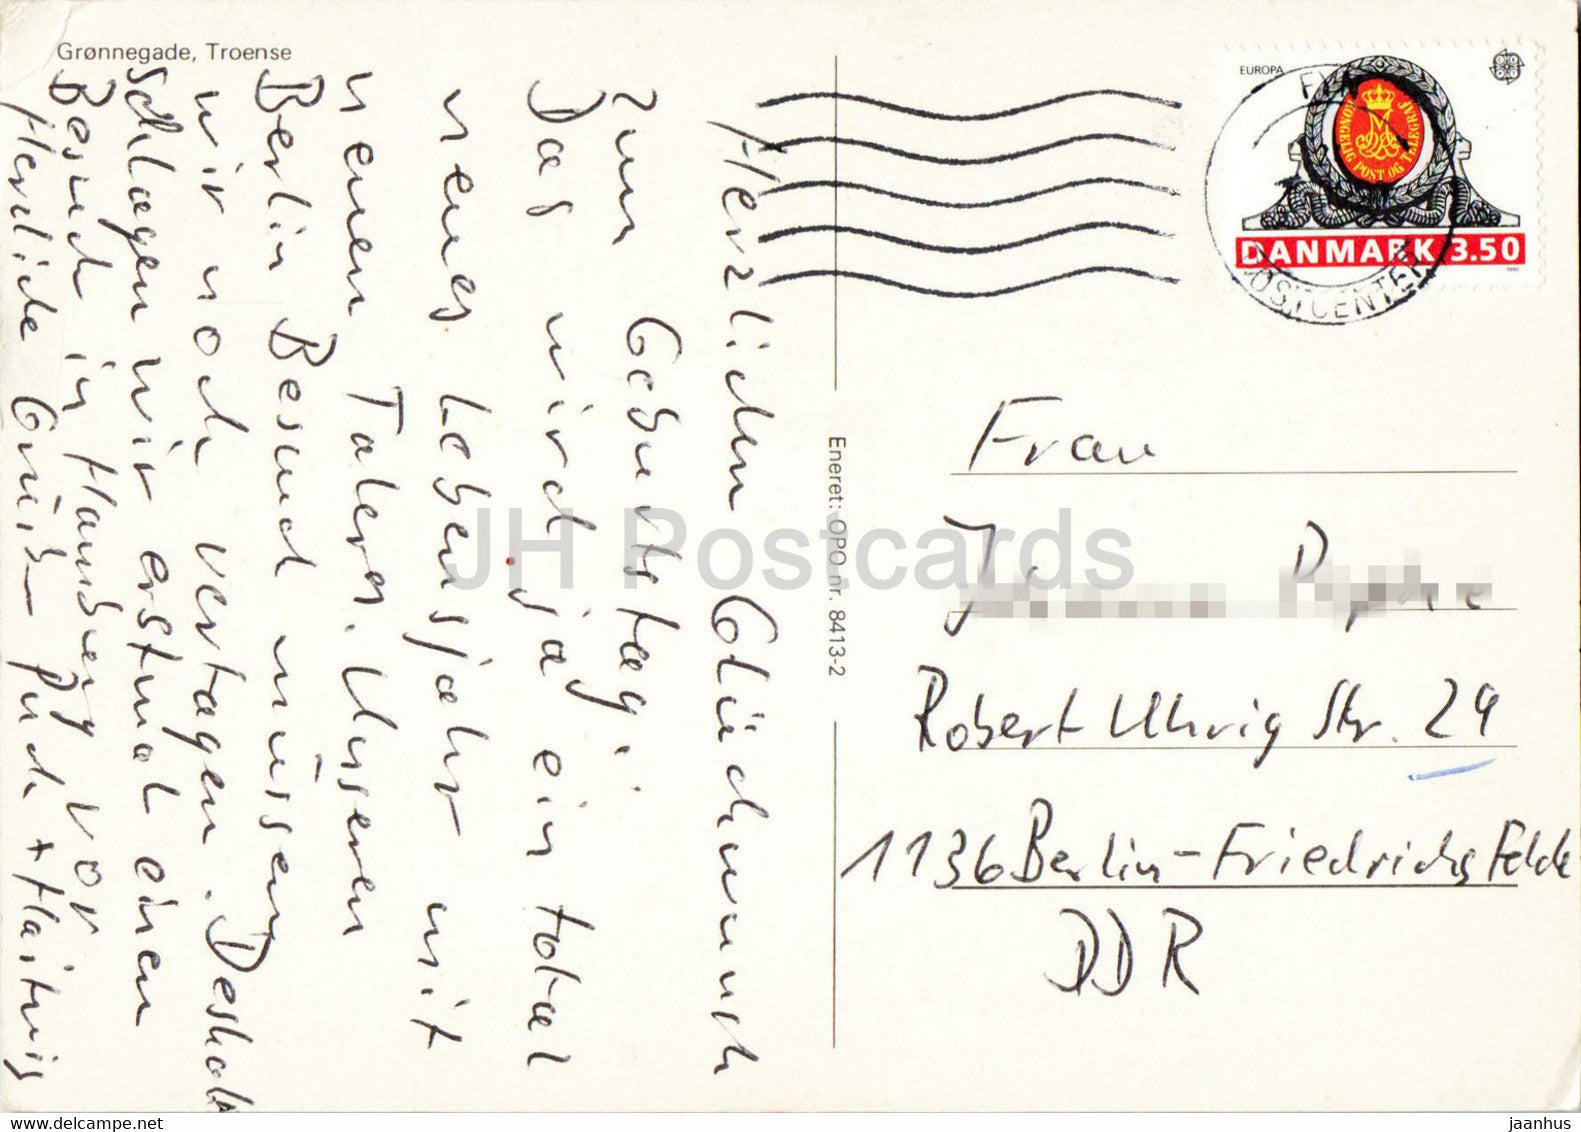 Grønnegade, Troense
Herzlichen Glückwunsch
zum Geburtstag!
Das wird ja ein total
neues Lebensjahr mit
neuen Talern. Unseren
Berlin Besuch müssen
wir noch vertagen. Deshalb
schlagen wir erstmal einen
Besuch in Hamburg vor
Herzliche Grüße
Eneret: OPO nr. 8413-2
EUROPA
KONGELIG POST OG TELEGRAF
DANMARK 3.50
1990
POSTCENTER
Frau
Robert Uhrig Str. 29
1136 Berlin-Friedrichsfelde
DDR
JH Postcards
www.delcampe.net
jaanhus